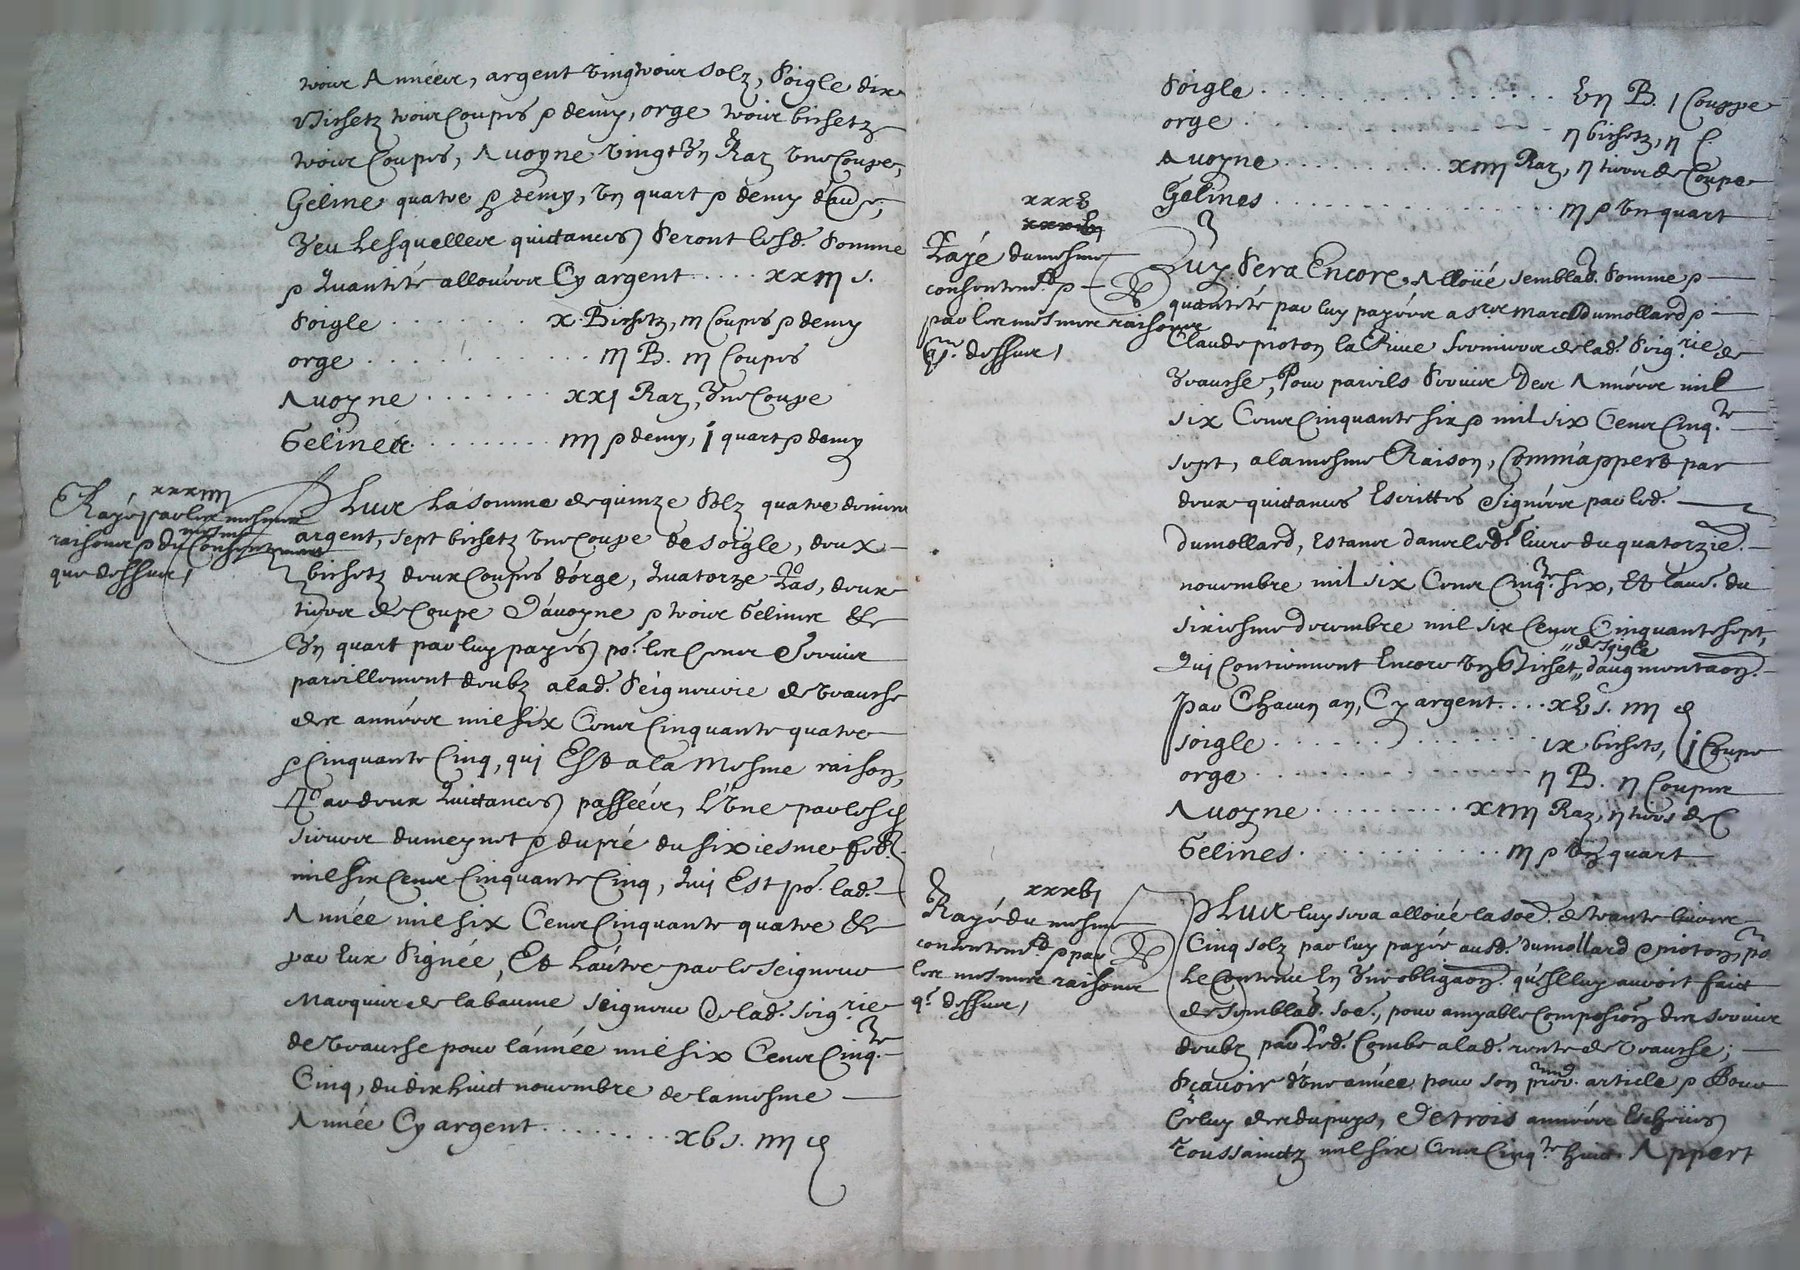 trois Années, argent vingtrois solz, soigle dix
bichetz trois Coupes et demy, orge trois bichetz
trois Coupes, Avoyne vingt Un Raz une Coupe,
Geline quatre et demy, un quart et demy
Veu Lesquelles quictances seront lesd. somme
et quantité allouées Cy argent .... xxiij s.
soigle ....... x Bichetz, iij Coupes et demy
orge ............ iij B. iij Coupes
Avoyne ....... xxj Raz, Une Coupe
Gelines ........ iiij et demy, j quart et demy
xxxiiij
Rayé par les mesmes
raisons et du mesme Consentement
que dessus,
Plus La somme de quinze solz quatre deniers
argent, sept bichetz une Coupe de soigle, deux
bichetz deux Coupes d'orge, quatorze Ras, deux
tiers de Coupe d'avoyne et trois Gelines et
Un quart par luy payés po.r les Cens Servis
pareillement deubz a lad. seigneurie de veausse
des années mil six Cens Cinquante quatre
et Cinquante Cinq, qui Est a la mesme raison,
par deux quictances passées, L'une par lesd.
sieurs dumeynet et dupré du sixiesme feb.
mil six Cens Cinquante Cinq, qui Est po.r lad.
Année mil six Cens Cinquante quatre et
par Eux signée, Et L'autre par le seigneur
Marquis de la baume seigneur de lad. seig.rie
de veausse pour l'année mil six Cens Cinq.te
Cinq, du dix huict novembre de la mesme
Année Cy argent ........ xv s. iiij d
soigle .............. vij B. j Couppe
orge ............ ij bichetz, ij C.
Avoyne .......... xiiij Raz, ij tiers de Coupe
Gelines ............... iij et un quart
xxxv
Rayé du mesme
consentem.t et
par les mesmes raisons
q. dessus,
Luy sera Encore Alloüé semblab. somme et
quantité par luy payées a s.rs marc dumollard et
Claude pioton la Rive fermiers de lad. seig.rie de
veausse, Pour pareils servis Des Années mil
six Cens Cinquante six et mil six Cens Cinq.te
sept, a la mesme Raison, Comm'appert par
deux quictances Escrittes Signées par led.
dumollard, Estans dans led. livre du quatorzie.
novembre mil six Cens Cinq.te six, Et l'au. du
sixiesme decembre mil six Cens Cinquante sept,
qui Contiennent Encore un Bichet de soigle d'augmentaon.
par Chacun an, Cy argent .... xv s. iiij d
soigle .............. ix bichets, j Coupe
orge ............... ij B. ij Coupes
Avoyne .......... xiiij Raz, ij tiers de C
Gelines ............. iij et un quart
xxxvj
Rayé du mesme
consentem.t et par
les mesmes raisons
q. dessus,
Plus luy sera alloüé la soe. de trante livres
Cinq solz par luy payée ausd. dumollard et pioton, po.r
Le Contenu En Une obligaon. qu'Il luy avoit faict
de semblab. soe., pour amyable Composion. des servis
deubz par led. Combe a lad. rente de veausse;
sçavoir d'une année pour son article et Pour
Celuy des dupuys, De trois années Escheües
Toussainctz mil six Cens Cinq.te huict. Appert